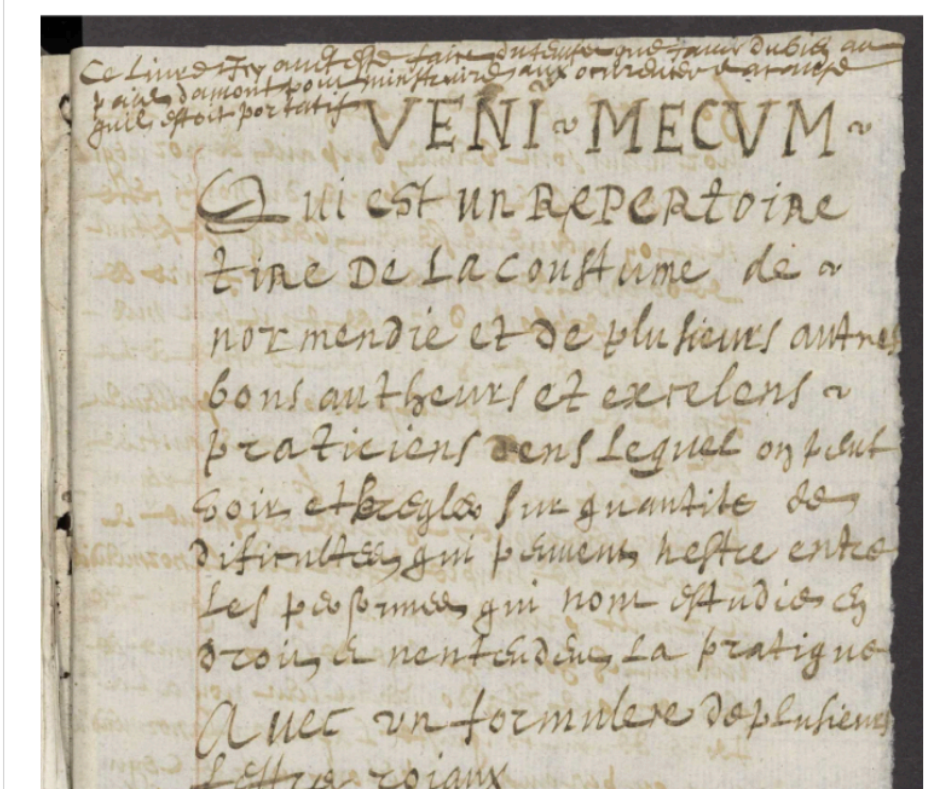 Ce Livre Icy avet esté faict du temps que javois dubis au
pour minstruire aux ocurences a cause
quil estoit portatif
VENI MECVM
Qui est un REPERtoire
tiRe De La coustume de
normendie et de plusieurs autres
bons autheurs et excelens
praticiens dens Lequel on peut
Voir et regles sur quantite de
Dificultes qui peuvent nestre entre
Les personnes qui nont estudie en
Droit, et nentendent La pratique
Avec un formulere de plusieurs
Lettres roiaux